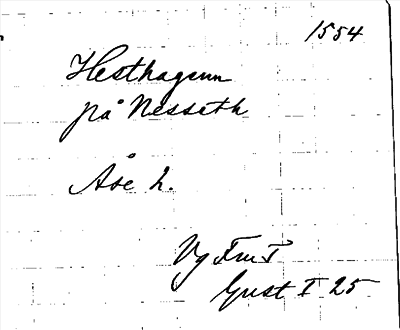 1554
Hesthagenn
på Nesseth
Åse h.
Vg Fru I
Gust I 25